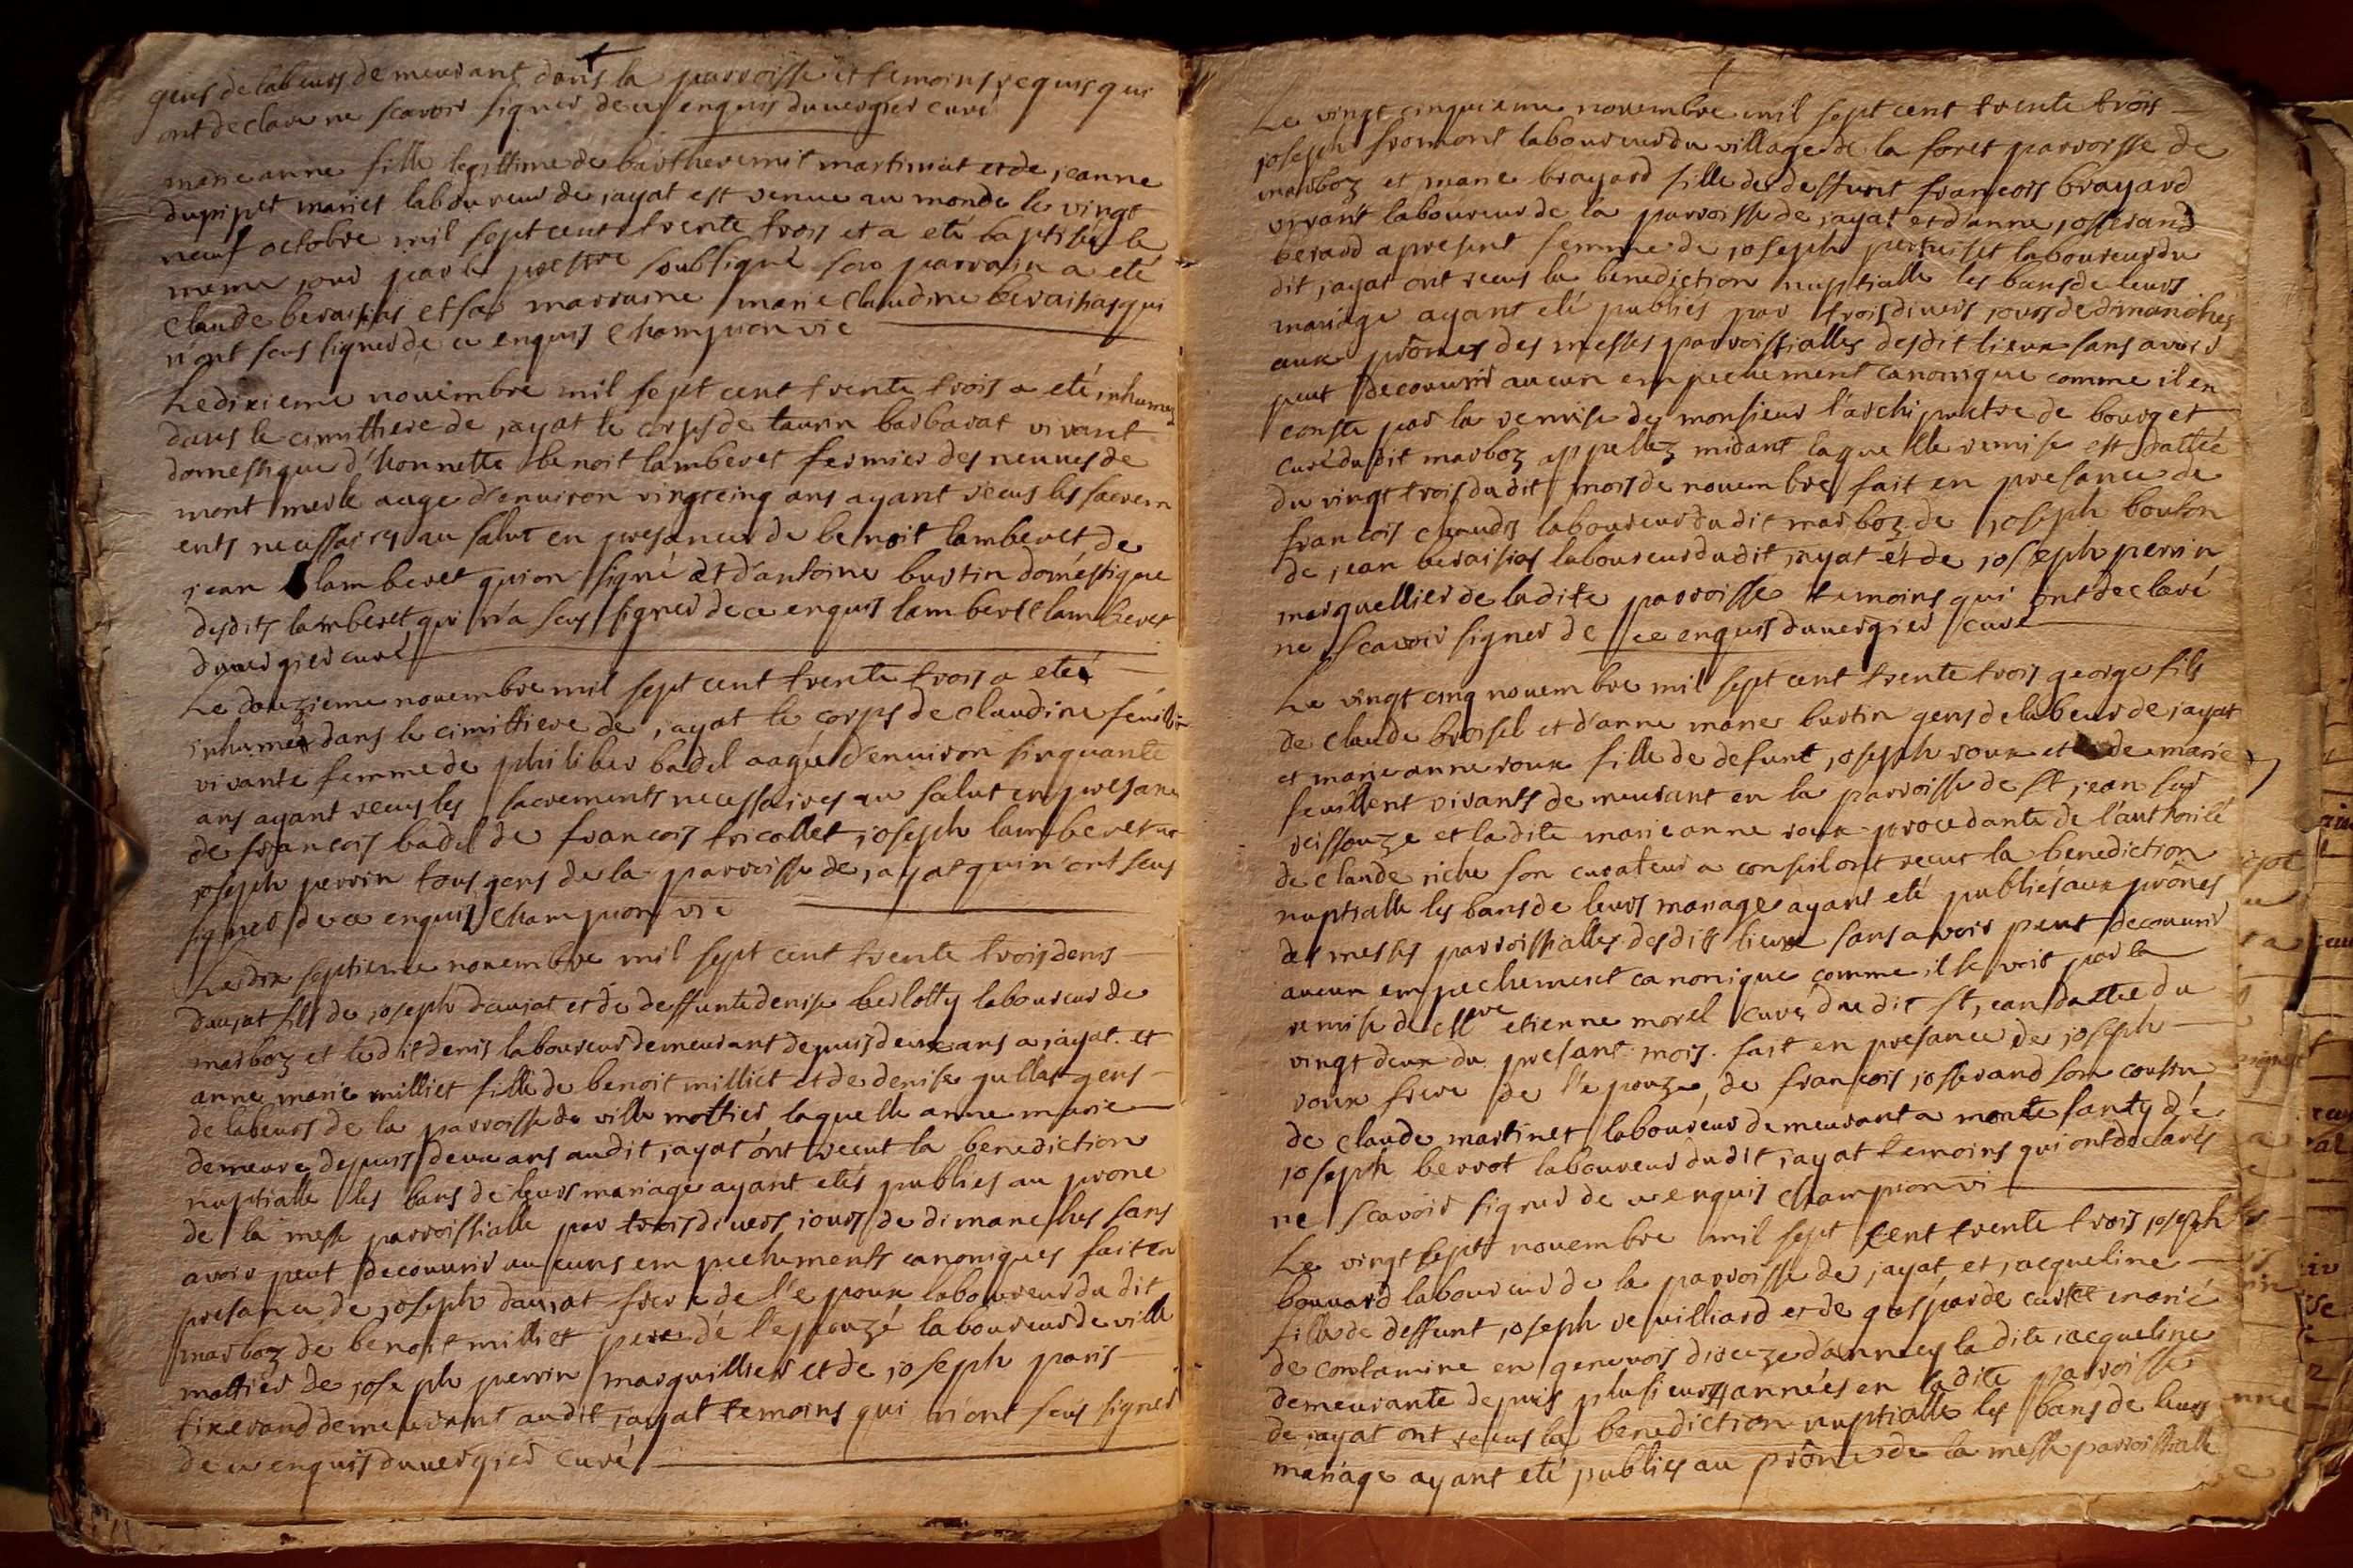 gens de labeurs demeurant dans la parroisse et temoins requis qui
ont declare ne scavoir signer de ce enquis duuergier curé
marie anne fille legittime de barthelemit martinat et de jeanne
dupipet mariet laboureur de jayat est venue au monde le vingt
neuf octobre mil sept cent trente trois et a eté baptisée le
meme jour par le prestre soubsigné son parrain a eté
claude beraisias et sa marraine marie claudine beraisias qui
n'ont seus signer de ce enquis Championvie
Le dixieme nouembre mil sept cent trente trois a eté inhumez
dans le cimithiere de jayat le corps de taurin barbarat vivant
domestique d'honnette benoit lamberet fermier des neuues de
mont merle aage d'enuiron vingtcinq ans ayant recus les sacrem
ents necessaires au salut en presance de benoit lamberet de
jean lamberet qui on signé et d'antoine bustin domestique
desdits lamberet qui n'a seus signer de ce enquis lamberet lamberet
duuergier curé
Le douzieme nouembre mil sept cent trente trois a eté
inhumée dans le cimithiere de jayat le corps de claudine
vivante femme de philiber badel aagée d'enuiron sinquante
ans ayant recus les sacrements necessaires au salut en presance
de francois badel de francois tricollet joseph lamberet et
joseph perrin tous gens de la parroisse de jayat qui n'ont seus
signer de ce enquis Championvie
Le dix septieme nouembre mil sept cent trente trois denis
daujat fils de joseph daujat et de deffunte denise berlotty laboureur de
marboz et ledit denis laboureur demeurant depuis deux ans a jayat et
anne marie milliet fille de benoit milliet et de denise gullas gens
de labeurs de la parroisse de ville mottier laquelle anne marie
demeure depuis deux ans audit jayat ont recut la benediction
nuptialle les bans de leurs mariage ayant etés publies au prone
de la messe parroissialle par trois diuers jours de dimanches sans
avoir peut decouurir aucuns empechements canoniques fait en
presance de joseph daujat frere de l'epoux laboureur du dit
marboz de benoit milliet pere de l'epouzé laboureur de ville
mottier de joseph perrin marguillier et de joseph paris
tixerand demeurant audit jayat temoins qui n'ont seus signer
de ce enquis duuergier curé
Le vingt cinquieme nouembre mil sept cent trente trois
joseph fromont laboureur du village de la foret parroisse de
marboz et marie brayard fille de deffunt francois brayard
vivant laboureur de la parroisse de jayat et d'anne josserand
berard apresent femme de joseph perruiset laboureur du
dit jayat ont recus la benediction nuptialle les bans de leurs
mariage ayant eté publiés par trois diuers jours de dimanches
aux prônes des messes parroissialles desdit lieux sans avoir
peut decouurir aucun empechement canonique comme il en
conste par la remise de monsieur l'archiprestre de bourg et
curé dudit marboz appellez midant laquelle remise est dattée
du vingt trois dudit mois de nouembre fait en presance de
francois chaudy laboureur du dit marboz de joseph bouton
de jean beraisias laboureur dudit jayat et de joseph perrin
marguellier de ladite parroisse temoins qui ont declaré
ne scavoir signer de ce enquis duuergier curé
Le vingt cinq nouembre mil sept cent trente trois george fils
de claude broisel et d'anne marie bustin gens de labeur de jayat
et marie anne roux fille de defunt joseph roux et de marie
feuillent vivants demeurant en la parroisse de st jean sur
reissouze et ladite marie anne roux procedante de l'authorité
de claude riche son curateur a conseil ont recut la benediction
nuptialle les bans de leurs mariage ayant eté publiés aux prônes
des messes parroissialles desdits lieux sans avoir peut decouurir
aucun empechement canonique comme il se voit par la
remise de Mre etienne morel curé du dit st jean dattée du
vingt deux du presant mois fait en presance de joseph
roux frere de l'epouze, de francois josserand son cousin
de claude martinet laboureur demeurant a
joseph berrot laboureur dudit jayat temoins qui ont declarés
ne scavoir signer de ce enquis Championvi
Le vingt sept nouembre mil sept cent trente trois joseph
bouuard laboureur de la parroisse de jayat et jacqueline
fille de deffunt joseph reuilliard et de gasparde curtet marié
de contamine en genevois dioceze d'annecy la dite jacqueline
demeurante depuis plusieurs années en la dite parroisse
de jayat ont recus la benediction nuptialle les bans de leurs
mariage ayant eté publies au prône de la messe parroissialle